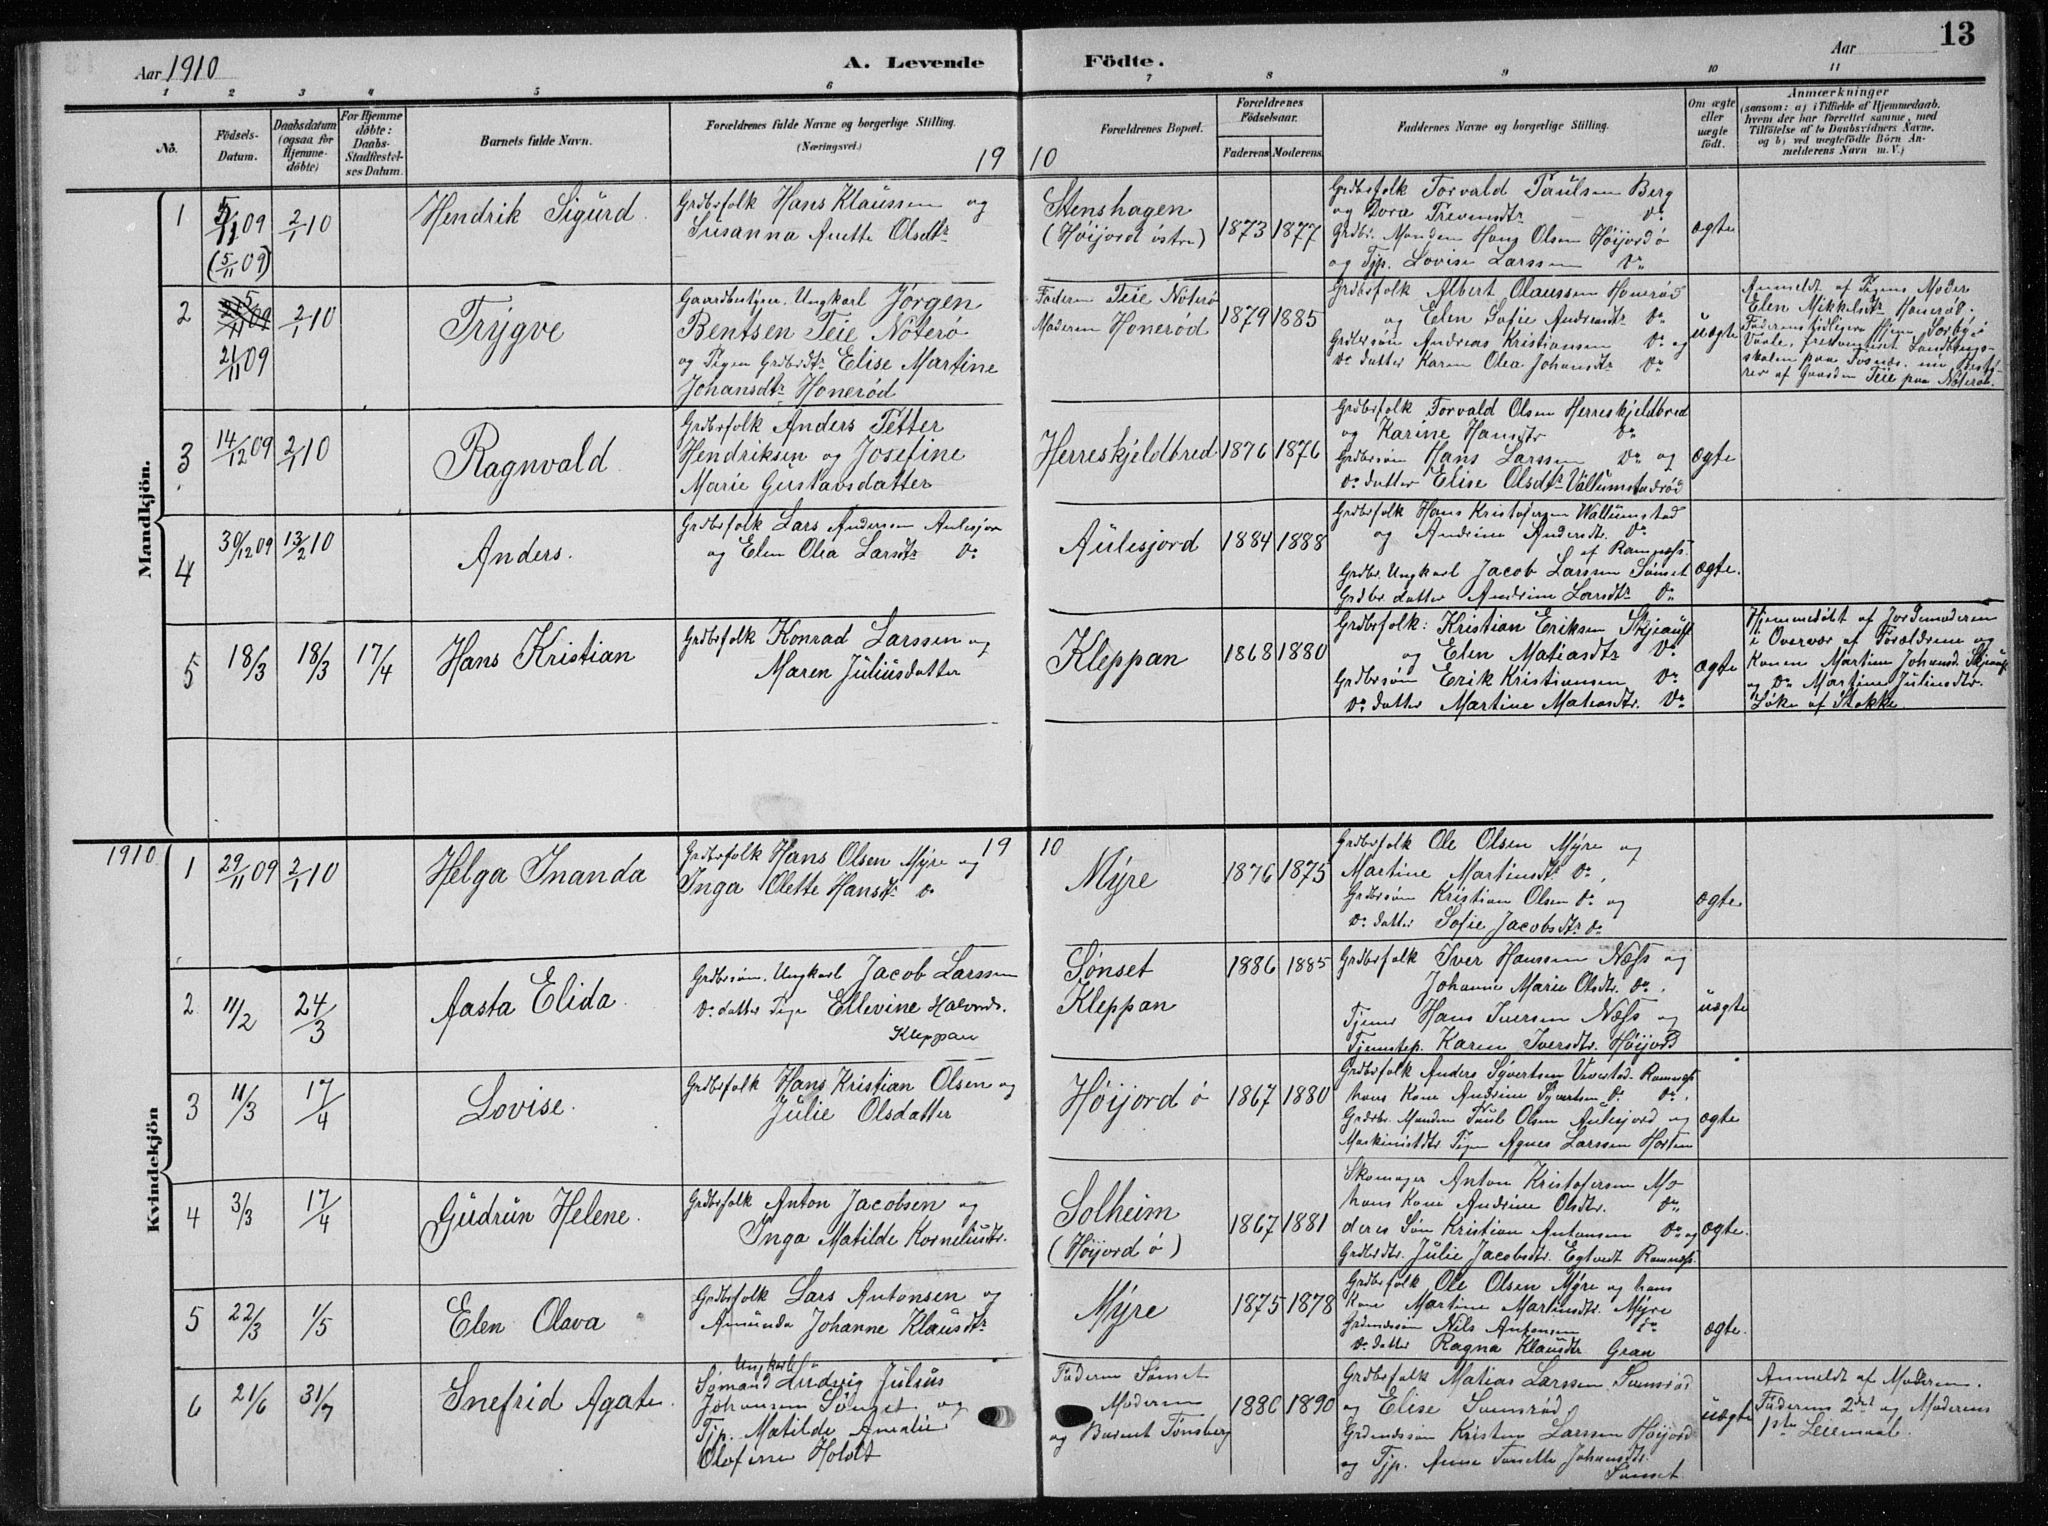 13
Aar 1910
A. Levende Födte.
Aar
1 2 3 4 5 6 7 8 9 10 11
No.
Födsels-Datum.
Daabsdatum (ogsaa for Hjemme-döbte)
For Hjemme döbte: Daabs-Stadfæstel-ses Datum.
Barnets fulde Navn.
Forældrenes fulde Navne og borgerlige Stilling.
(Næringsvei.)
Forældrenes Bopæl.
Forældrenes Födselsaar.
Faderens Moderens
Faddernes Navne og borgerlige Stilling.
Om ægte eller uægte födt.
Anmærkninger
(saasom: a) i Tilfælde af Hjemmedaab, hvem der har forrettet samme, med Tilföielse af to Daabsvidners Navne, og b) ved uægtefödte Börn An-melderens Navn m. V.)
19 10
Mandkjön.
1 5/11 09 2/1 10
(5/11 09)
Hendrik Sigurd
Grdbrfolk Hans Klaussen og
Susanna Anette Olsdtr
Stenshagen
(Høijord østre)
1873 1877
Grdbrfolk Torvald Paulsen Berg
og Dora Trevensdtr Do
Grdbr. Manden Hans Olsen Höijord ö
og Tjp. Lovise Larssen Do
ægte
2 2/1 10
21/11 09
Trygve
Gaardbestyrer. Ungkarl Jørgen
Bentsen Teie Nøterø
og Pigen Grdbrdtr Elise Martine
Johansdtr Honerød
Faderen Teie Nøterø
Moderen Honerød
1879 1885
Grdbrfolk Albert Olaussen Honerød
og Elen Sofie Andreasdtr Do
Grdbrsøn Andreas Kristiansen Do og
Do datter Karen Olea Johansdtr Do
uægte
Anmeldt af Pigens Moder
Elen Mikkelsdtr Honerød.
Faderens tidligere Hjem Sørby i
Vaale, frekventeret Landbrugs-
skolen paa Fosnæs. nu Besty-
rer af Gaarden Teie paa Nøterø.
3 14/12 09 2/1 10
Ragnvald
Grdbrfolk Anders Petter
Hendriksen og Josefine
Marie Gustavsdatter
Herreskjeldbred
1876 1876
Grdbrfolk Torvald Olsen Herreskjeldbred
og Karine Hansdtr Do
Grdbrsøn Hans Larssen Do og
Do datter Elise Olsdtr Vallumstadrød
ægte
4 30/12 09 13/2 10
Anders.
Grdbrfolk Lars Andersen Aulesjor
og Elen Olea Larsdtr Do
Aulesjord
1884 1888
Grdbrfolk Hans Kristofersen Wallumstad
og Andrine Andersdtr. Do
af Ramnæss.
Grdbr. Ungkarl Jacob Larssen Sønset
Grdbr. datter Andrine Larsdtr. Do
ægte.
5 18/3 18/3 17/4
Hans Kristian
Grdbrfolk Konrad Larssen og
Maren Juliusdatter
Kleppan
1868 1880
Grdbrfolk: Kristian Eriksen Skjeau
og Elen Matiasdtr Do
Grdbrsøn Erik Kristiansen Do
Do datter Martine Matiasdtr. Do
ægte
Hjemmedøbt af Jordemoderen
i Overvær af Forældrene og
Konen Martine Johansd. Skjeau
og Do Martine Juliusdtr.
Løke af Stokke.
1910
19 10
Kvindekjön
1 29/11 09 2/1 10
Helga Inanda
Grdbrfolk Hans Olsen Myre og
Inga Olette Hansdtr. Do
Myre
1876 1875
Grdbrfolk Ole Olsen Myre og
Martine Martinsdtr Do.
Grdbrsøn Kristian Olsen Do og
Do datter Sofie Jacobsdtr Do
ægte
2 11/2 24/3
Aasta Elida
Grdbrsøn. Ungkarl Jacob Larssen
Do datter Pige Ellevine Halvords.
Kleppan
Sønset
Kleppan
1886 1885
Grdbrfolk Iver Hanssen Næss og
Johanne Marie Olsdtr. Do.
Tjener Hans Iversen Næss og
Tjenstep. Karen Iversdtr. Høijord
uægte
3 11/3 17/4
Lovise.
Grdbrfolk Hans Kristian Olsen og
Julie Olsdatter
Høijord ø
1867 1880
Grdbrfolk Anders Syvertsen Vivestad. Ramnæss
hans Kone Andrine Syvertsen D. Do.
Grdbr. Manden Paul Olsen Aulesjord og
Maskinistdtr Pigen Agnes Larssen Horten
ægte
4 3/3 17/4
Gudrun Helene.
Grdbrfolk Anton Jacobsen og
Inga Matilde Korneliusdtr.
Solheim
(Høijord ø)
1867 1881
Skomager Anton Kristofersen Mo
hans Kone Andrine Olsdtr. Do
deres Søn Kristian Antonsen Do og
Grdbrdtr. Julie Jacobsdtr. Egtvedt Ramnæss.
ægte.
5 22/3 1/5
Elen Olava
Grdbrfolk Lars Antonsen og
Amunda Johanne Klausdtr
Myre
1875 1878
Grdbrfolk Ole Olsen Myre og hans
Kone Martine Martinsdtr. Myre
Grdmandssøn Nils Antonsen Do
Do datter Ragna Klausdtr Gran
ægte.
6 21/6 31/7
Snefrid Agate.
Ungkarl
Sømand Ludvig Julius
Johansen Sønset og
Tjp. Matilde Amalie
Olofine Holdt
Faderen Sønset
Moderen
og Barnet Tønsberg
1886 1890
Grdbrfolk Matias Larssen Svensrød
og Elise Svensrød
Grdmandssøn Kristen Larssen Høijord
og Tjp. Anne Tonette Johansdtr.
Sønset
uægte
Anmeldt af Moderen.
Faderens 2det og Moderens
1ste Leiermaal.